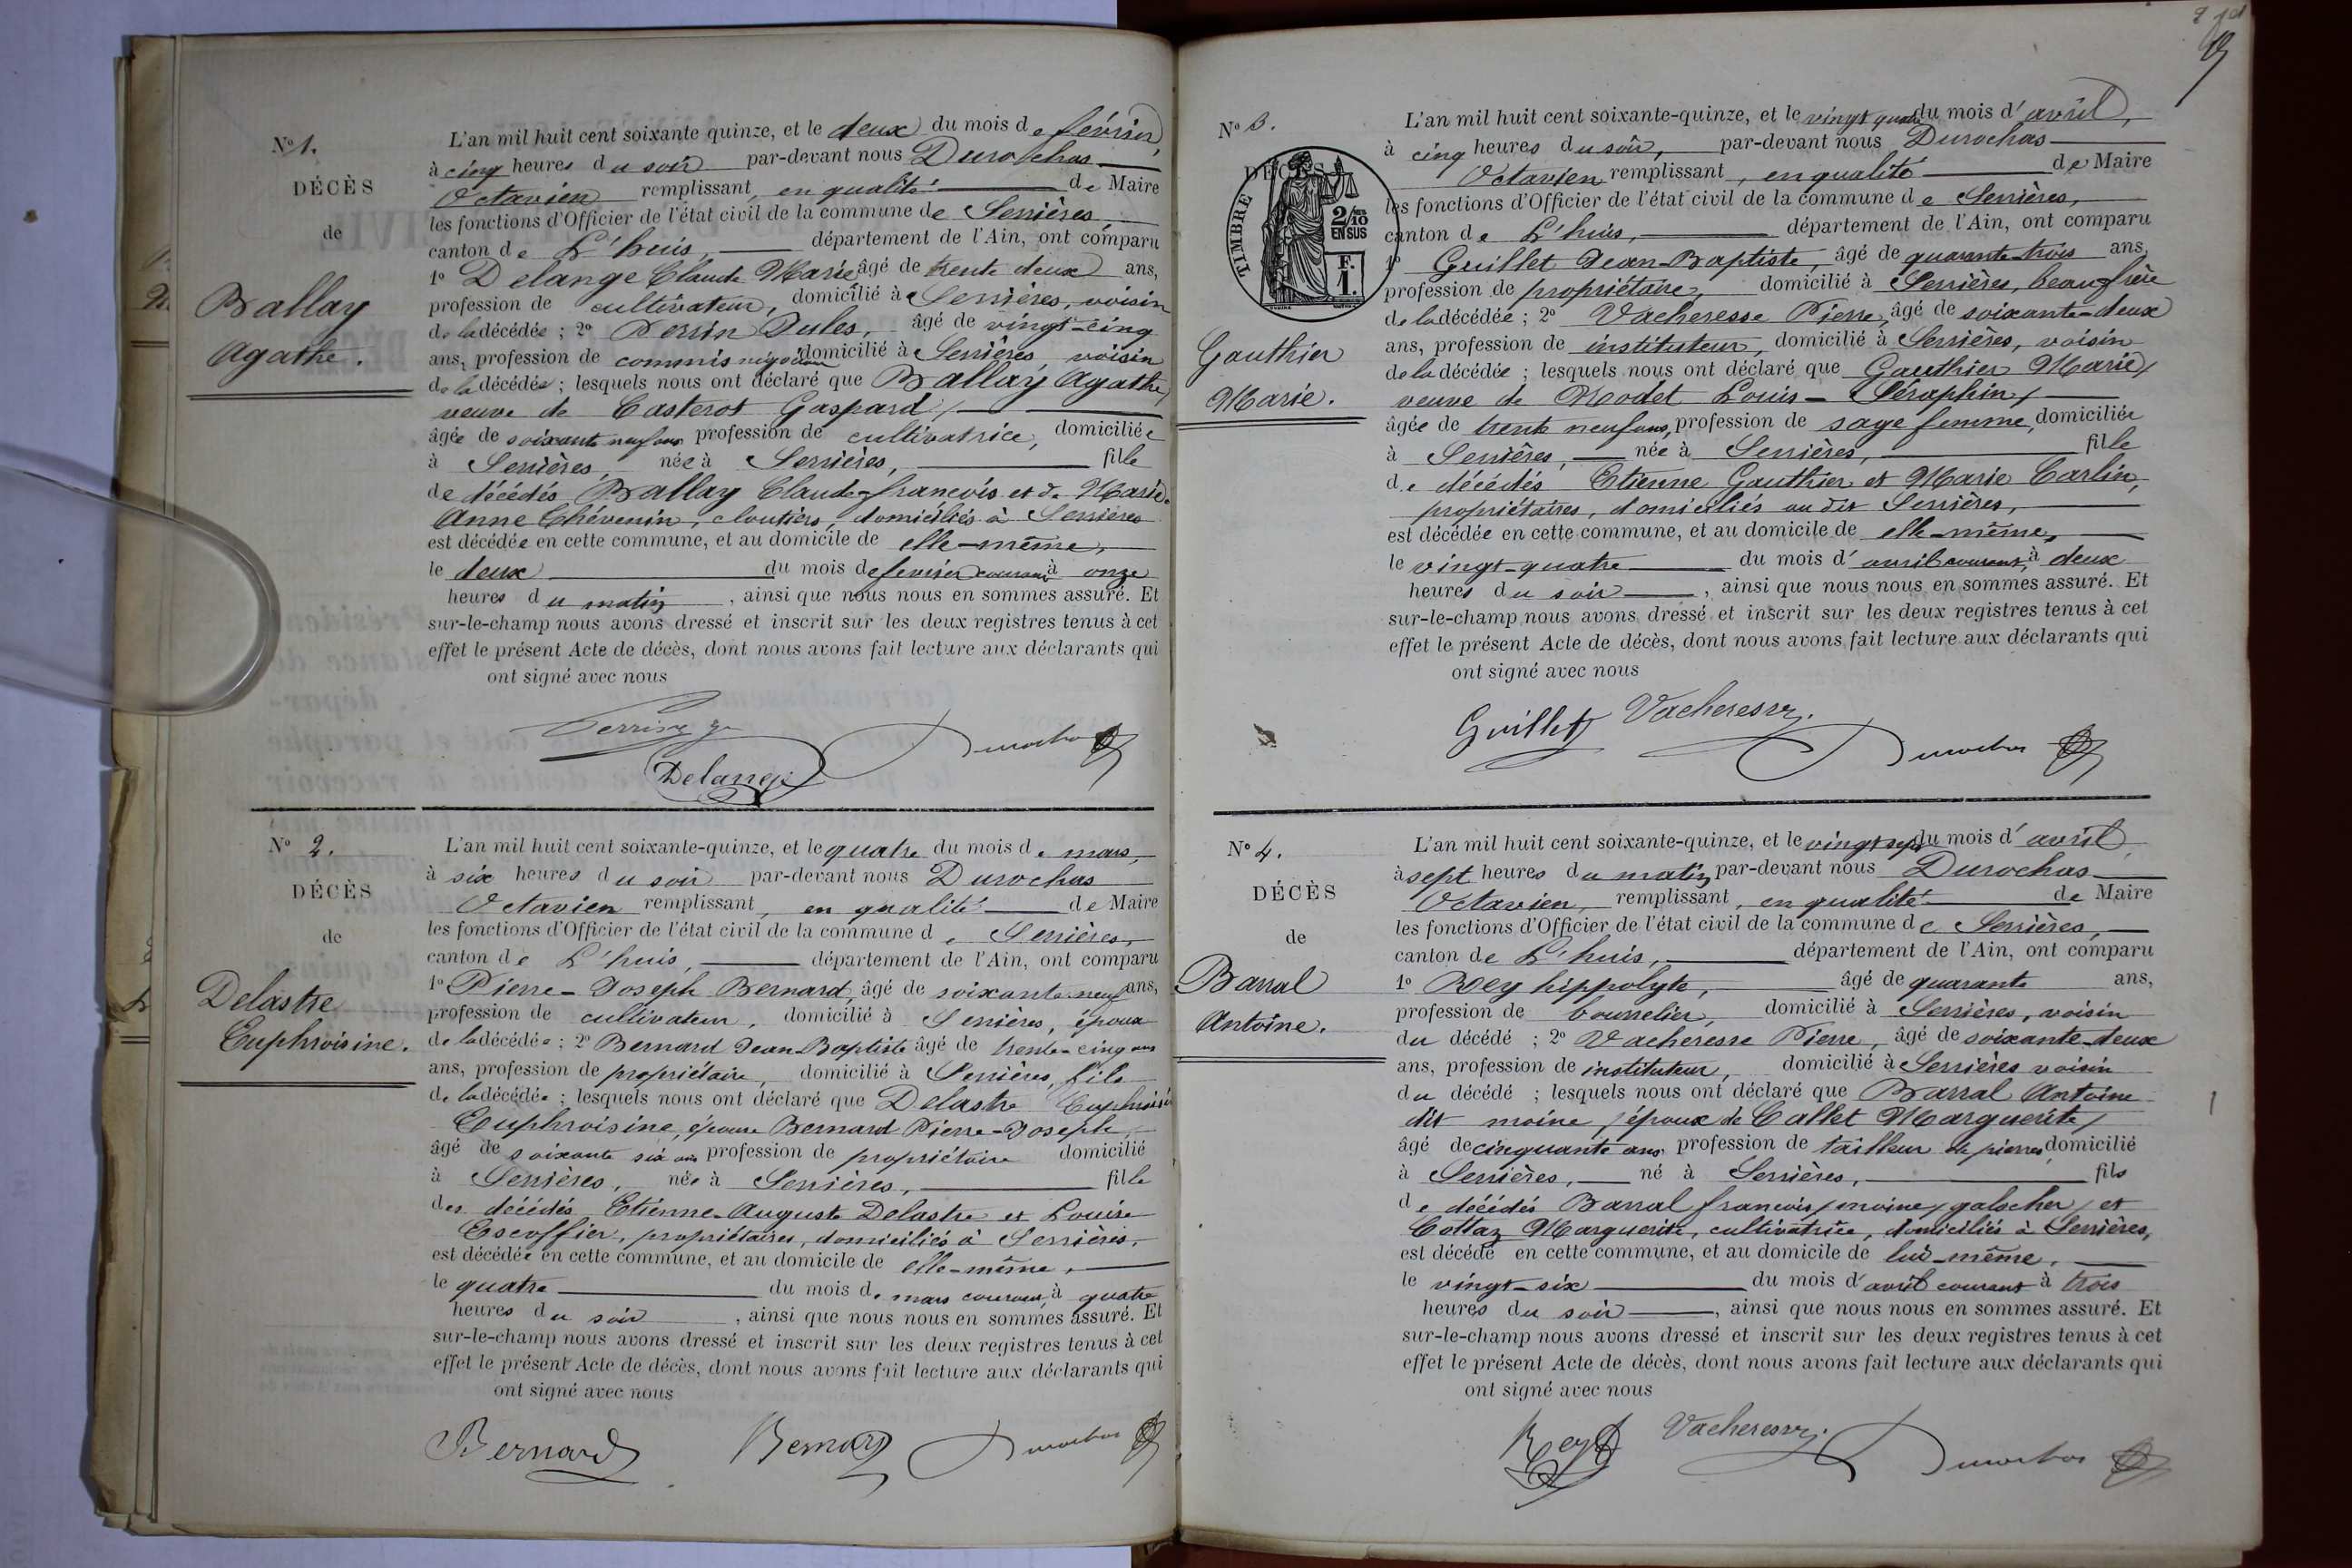 No 1.
DÉCÈS
de
Ballay
Agathe.
L'an mil huit cent soixante quinze, et le deux du mois de février,
à cinq heures du soir par-devant nous Durochas
Octavien remplissant, en qualité de Maire
les fonctions d'Officier de l'état civil de la commune de Serrières,
canton de L'huis, département de l'Ain, ont comparu
1o Delange Claude Marie, âgé de trente deux ans,
profession de cultivateur, domicilié à Serrières, voisin
de la décédée ; 2o Perrin Jules, âgé de vingt-cinq
ans, profession de commis négociant domicilié à Serrières voisin
de la décédée ; lesquels nous ont déclaré que Ballay Agathe,
veuve de Casterot Gaspard /
âgée de soixante neuf ans profession de cultivatrice, domiciliée
à Serrières, née à Serrières, fille
de décédés Ballay Claude-françois et de Marie-
Anne Chévenin, cloutiers, domiciliés à Serrières
est décédée en cette commune, et au domicile de elle-même,
le deux du mois de fevrier courant à onze
heures du matin, ainsi que nous nous en sommes assuré. Et
sur-le-champ nous avons dressé et inscrit sur les deux registres tenus à cet
effet le présent Acte de décès, dont nous avons fait lecture aux déclarants qui
ont signé avec nous
Perrin
Durochas
Delange
No 2.
DÉCÈS
de
Delastre
Euphroisine.
L'an mil huit cent soixante-quinze, et le quatre du mois de mars,
à six heures du soir par-devant nous Durochas
Octavien remplissant, en qualité de Maire
les fonctions d'Officier de l'état civil de la commune de Serrières,
canton de L'huis, département de l'Ain, ont comparu
1o Pierre-Joseph Bernard, âgé de soixante-neuf ans,
profession de cultivateur, domicilié à Serrières, époux
de la décédée ; 2o Bernard Jean-Baptiste âgé de trente-cinq ans
ans, profession de propriétaire, domicilié à Serrières, fils
de la décédée ; lesquels nous ont déclaré que Delastre
Euphroisine, épouse Bernard Pierre-Joseph,
âgé de soixante six ans profession de propriétaire domicilié
à Serrières, née à Serrières, fille
des décédés Etienne-Auguste Delastre et Louise
Escoffier, propriétaires, domiciliés à Serrières,
est décédée en cette commune, et au domicile de elle-même,
le quatre du mois de mars courant, à quatre
heures du soir, ainsi que nous nous en sommes assuré. Et
sur-le-champ nous avons dressé et inscrit sur les deux registres tenus à cet
effet le présent Acte de décès, dont nous avons fait lecture aux déclarants qui
ont signé avec nous
Bernard Bernard Durochas
No 3.
DÉCÈS
TIMBRE
2/10
EN SUS
F.
1.
Gauthier
Marie.
L'an mil huit cent soixante-quinze, et le vingt quatre du mois d'avril,
à cinq heures du soir, par-devant nous Durochas
Octavien remplissant, en qualité de Maire
les fonctions d'Officier de l'état civil de la commune de Serrières,
canton de L'huis, département de l'Ain, ont comparu
1o Guillet Jean-Baptiste, âgé de quarante-trois ans,
profession de propriétaire, domicilié à Serrières, beau-frère
de la décédée ; 2o Vacheresse Pierre, âgé de soixante-deux
ans, profession de instituteur, domicilié à Serrières, voisin
de la décédée ; lesquels nous ont déclaré que Gauthier Marie,
veuve de Modet Louis-Séraphin /
âgée de trente neuf ans, profession de sage femme, domiciliée
à Serrières, née à Serrières, fille
de décédés Etienne Gauthier et Marie Carlin,
propriétaires, domiciliés au dit Serrières,
est décédée en cette commune, et au domicile de elle-même,
le vingt-quatre du mois d'avril courant, à deux
heures du soir, ainsi que nous nous en sommes assuré. Et
sur-le-champ nous avons dressé et inscrit sur les deux registres tenus à cet
effet le présent Acte de décès, dont nous avons fait lecture aux déclarants qui
ont signé avec nous
Guillet Vacheresse.
Durochas
No 4.
DÉCÈS
de
Barral
Antoine.
L'an mil huit cent soixante-quinze, et le vingt sept du mois d'avril
à sept heures du matin par-devant nous Durochas
Octavien, remplissant, en qualité de Maire
les fonctions d'Officier de l'état civil de la commune de Serrières,
canton de L'huis, département de l'Ain, ont comparu
1o Rey hippolyte, âgé de quarante ans,
profession de bourrelier, domicilié à Serrières, voisin
du décédé ; 2o Vacheresse Pierre, âgé de soixante-deux
ans, profession de instituteur, domicilié à Serrières voisin
du décédé ; lesquels nous ont déclaré que Barral Antoine
dit moine / époux de Callet Marguerite /
âgé de cinquante ans profession de tailleur de pierres, domicilié
à Serrières, né à Serrières, fils
de décédés Barral françois / moine / galocher / et
Cottaz Marguerite, cultivatrice, domiciliés à Serrières,
est décédé en cette commune, et au domicile de lui-même,
le vingt-six du mois d'avril courant à trois
heures du soir, ainsi que nous nous en sommes assuré. Et
sur-le-champ nous avons dressé et inscrit sur les deux registres tenus à cet
effet le présent Acte de décès, dont nous avons fait lecture aux déclarants qui
ont signé avec nous
Rey Vacheresse.
Durochas